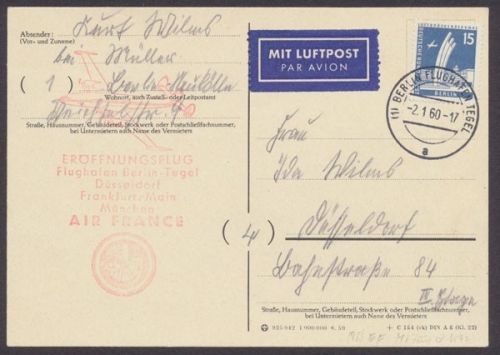 Absender:
(Vor- und Zuname)
Kurt Wilms
bei Müller
(1) Berlin Neukölln
Wohnort, auch Zustell- oder Leitpostamt
Straße, Hausnummer, Gebäudeteil, Stockwerk oder Postschließfachnummer,
bei Untermietern auch Name des Vermieters
ERÖFFNUNGSFLUG
Flughafen Berlin-Tegel
Düsseldorf
Frankfurt/Main
München
AIR FRANCE
MIT LUFTPOST
PAR AVION
15
BERLIN
(1) BERLIN FLUGHAFEN TEGEL
-2.1.60-17
a
Frau
Ida Wilms
(4) Düsseldorf
Bahnstraße 84
III. Etage
Straße, Hausnummer, Gebäudeteil, Stockwerk oder Postschließfachnummer,
bei Untermietern auch Name des Vermieters
C 154 (vk) DIN A 6 (Kl.